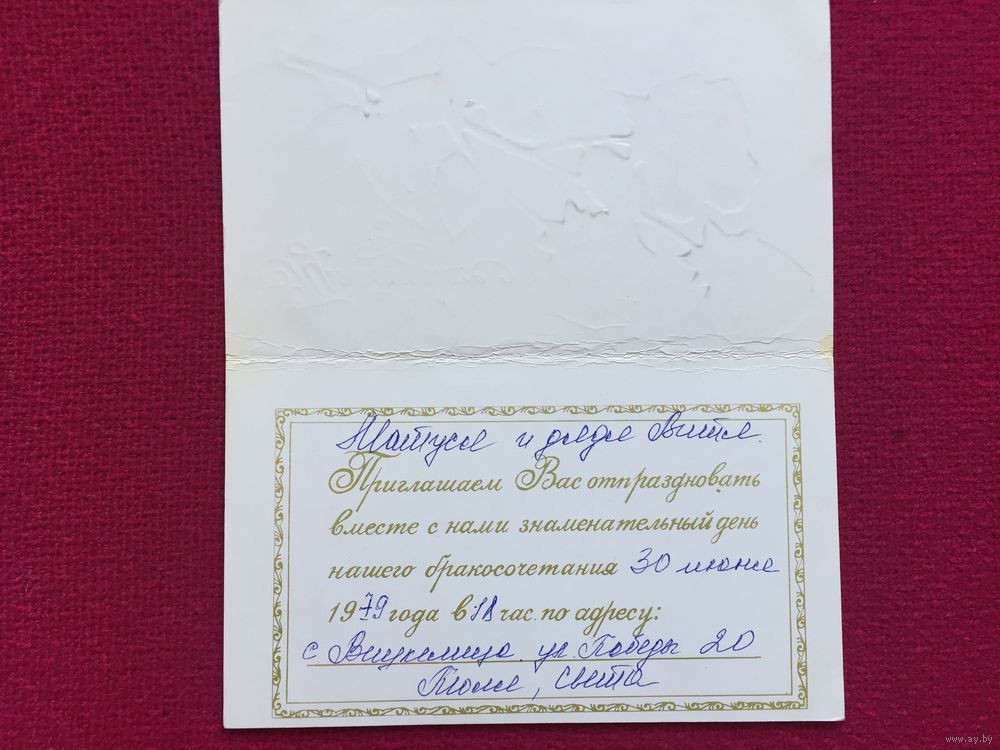 Матуся и дядя Витя.
Приглашаем Вас отпраздновать
вместе с нами знаменательный день
нашего бракосочетания 30 июня
1979 года в 18 час. по адресу:
с ул Победы 20
Толя, Света
www.ay.by